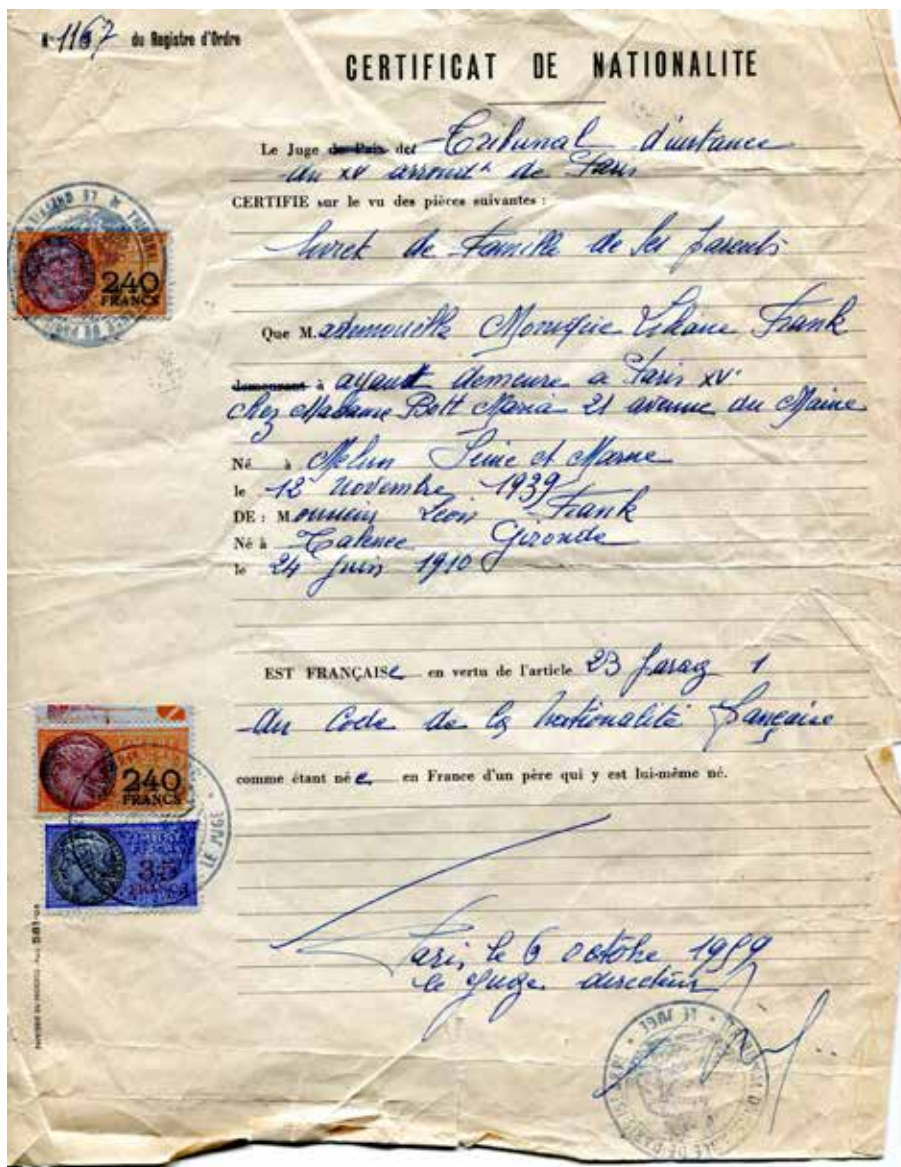 N° 1167 du Registre d'Ordre
CERTIFICAT DE NATIONALITE
Le Juge de Paix de Tribunal d'instance
du XV arrondt de Paris
CERTIFIE sur le vu des pièces suivantes :
livret de Famille de ses parents
Que M.ademoiselle Monique Liliane Frank
demeurant à ayant demeuré à Paris XV°
chez Madame Bott Maria 21 avenue du Maine
Né à Melun Seine et Marne
le 12 novembre 1939
DE : Monsieur Léon Frank
Né à Talence Gironde
le 24 juin 1910
EST FRANÇAISe en vertu de l'article 23 parag 1
du Code de la Nationalité française
comme étant née en France d'un père qui y est lui-même né.
Paris, le 6 octobre 1959
le Juge directeur
240
FRANCS
240
FRANCS
35
FRANCS
LE JUGE